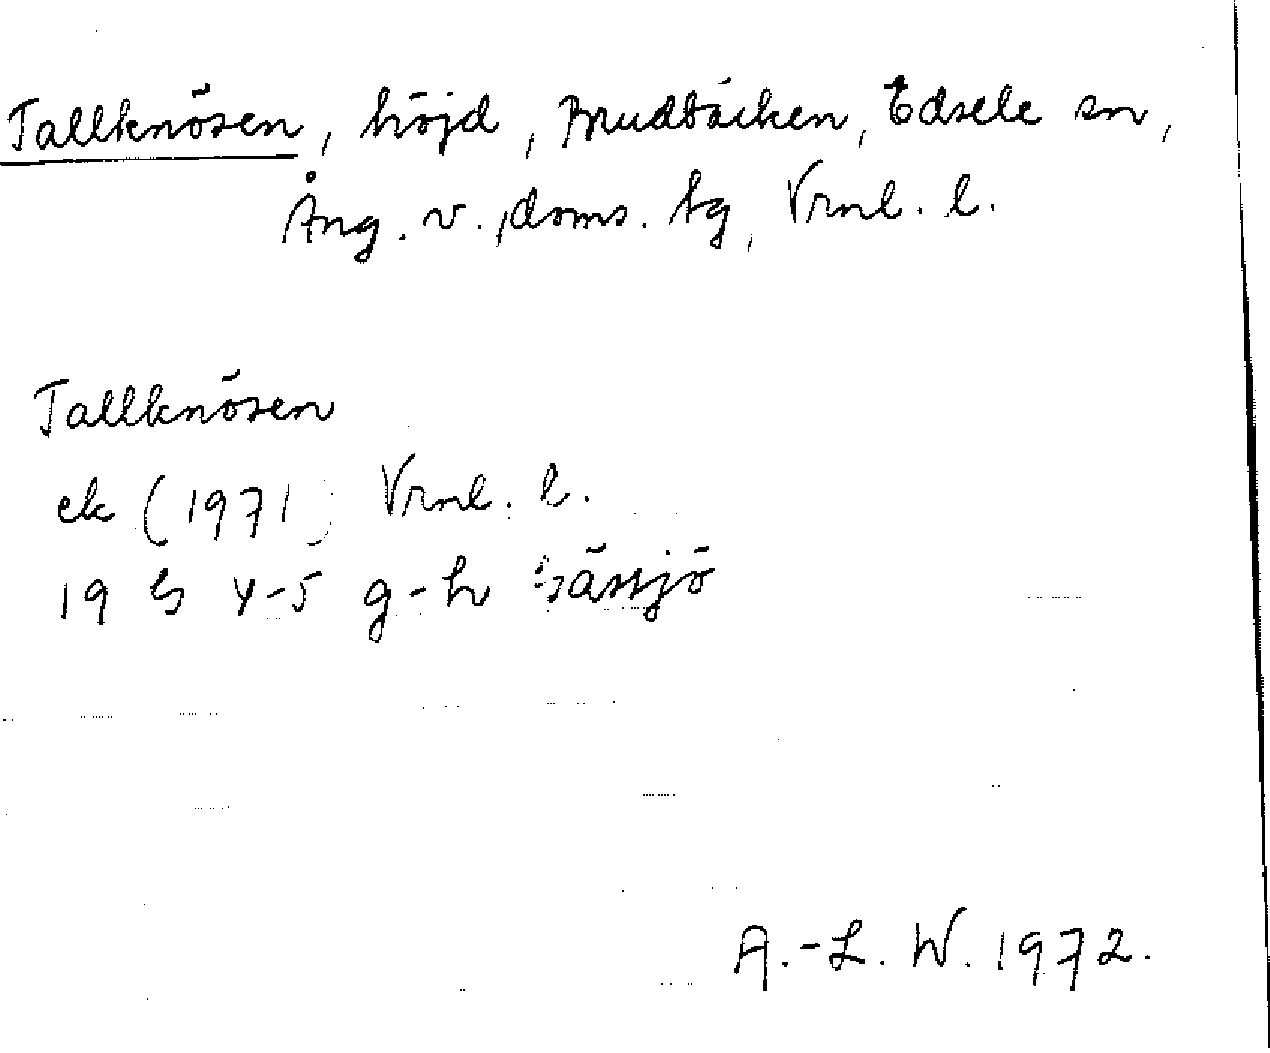 Tallknösen, höjd, Mudbäcken, Edsele sn,
Ång. v. doms. tg, Vrnl. l.
Tallknösen
ek (1971) Vrnl. l.
19 G 4-5 g-h Gåssjö
A.-L. W. 1972.